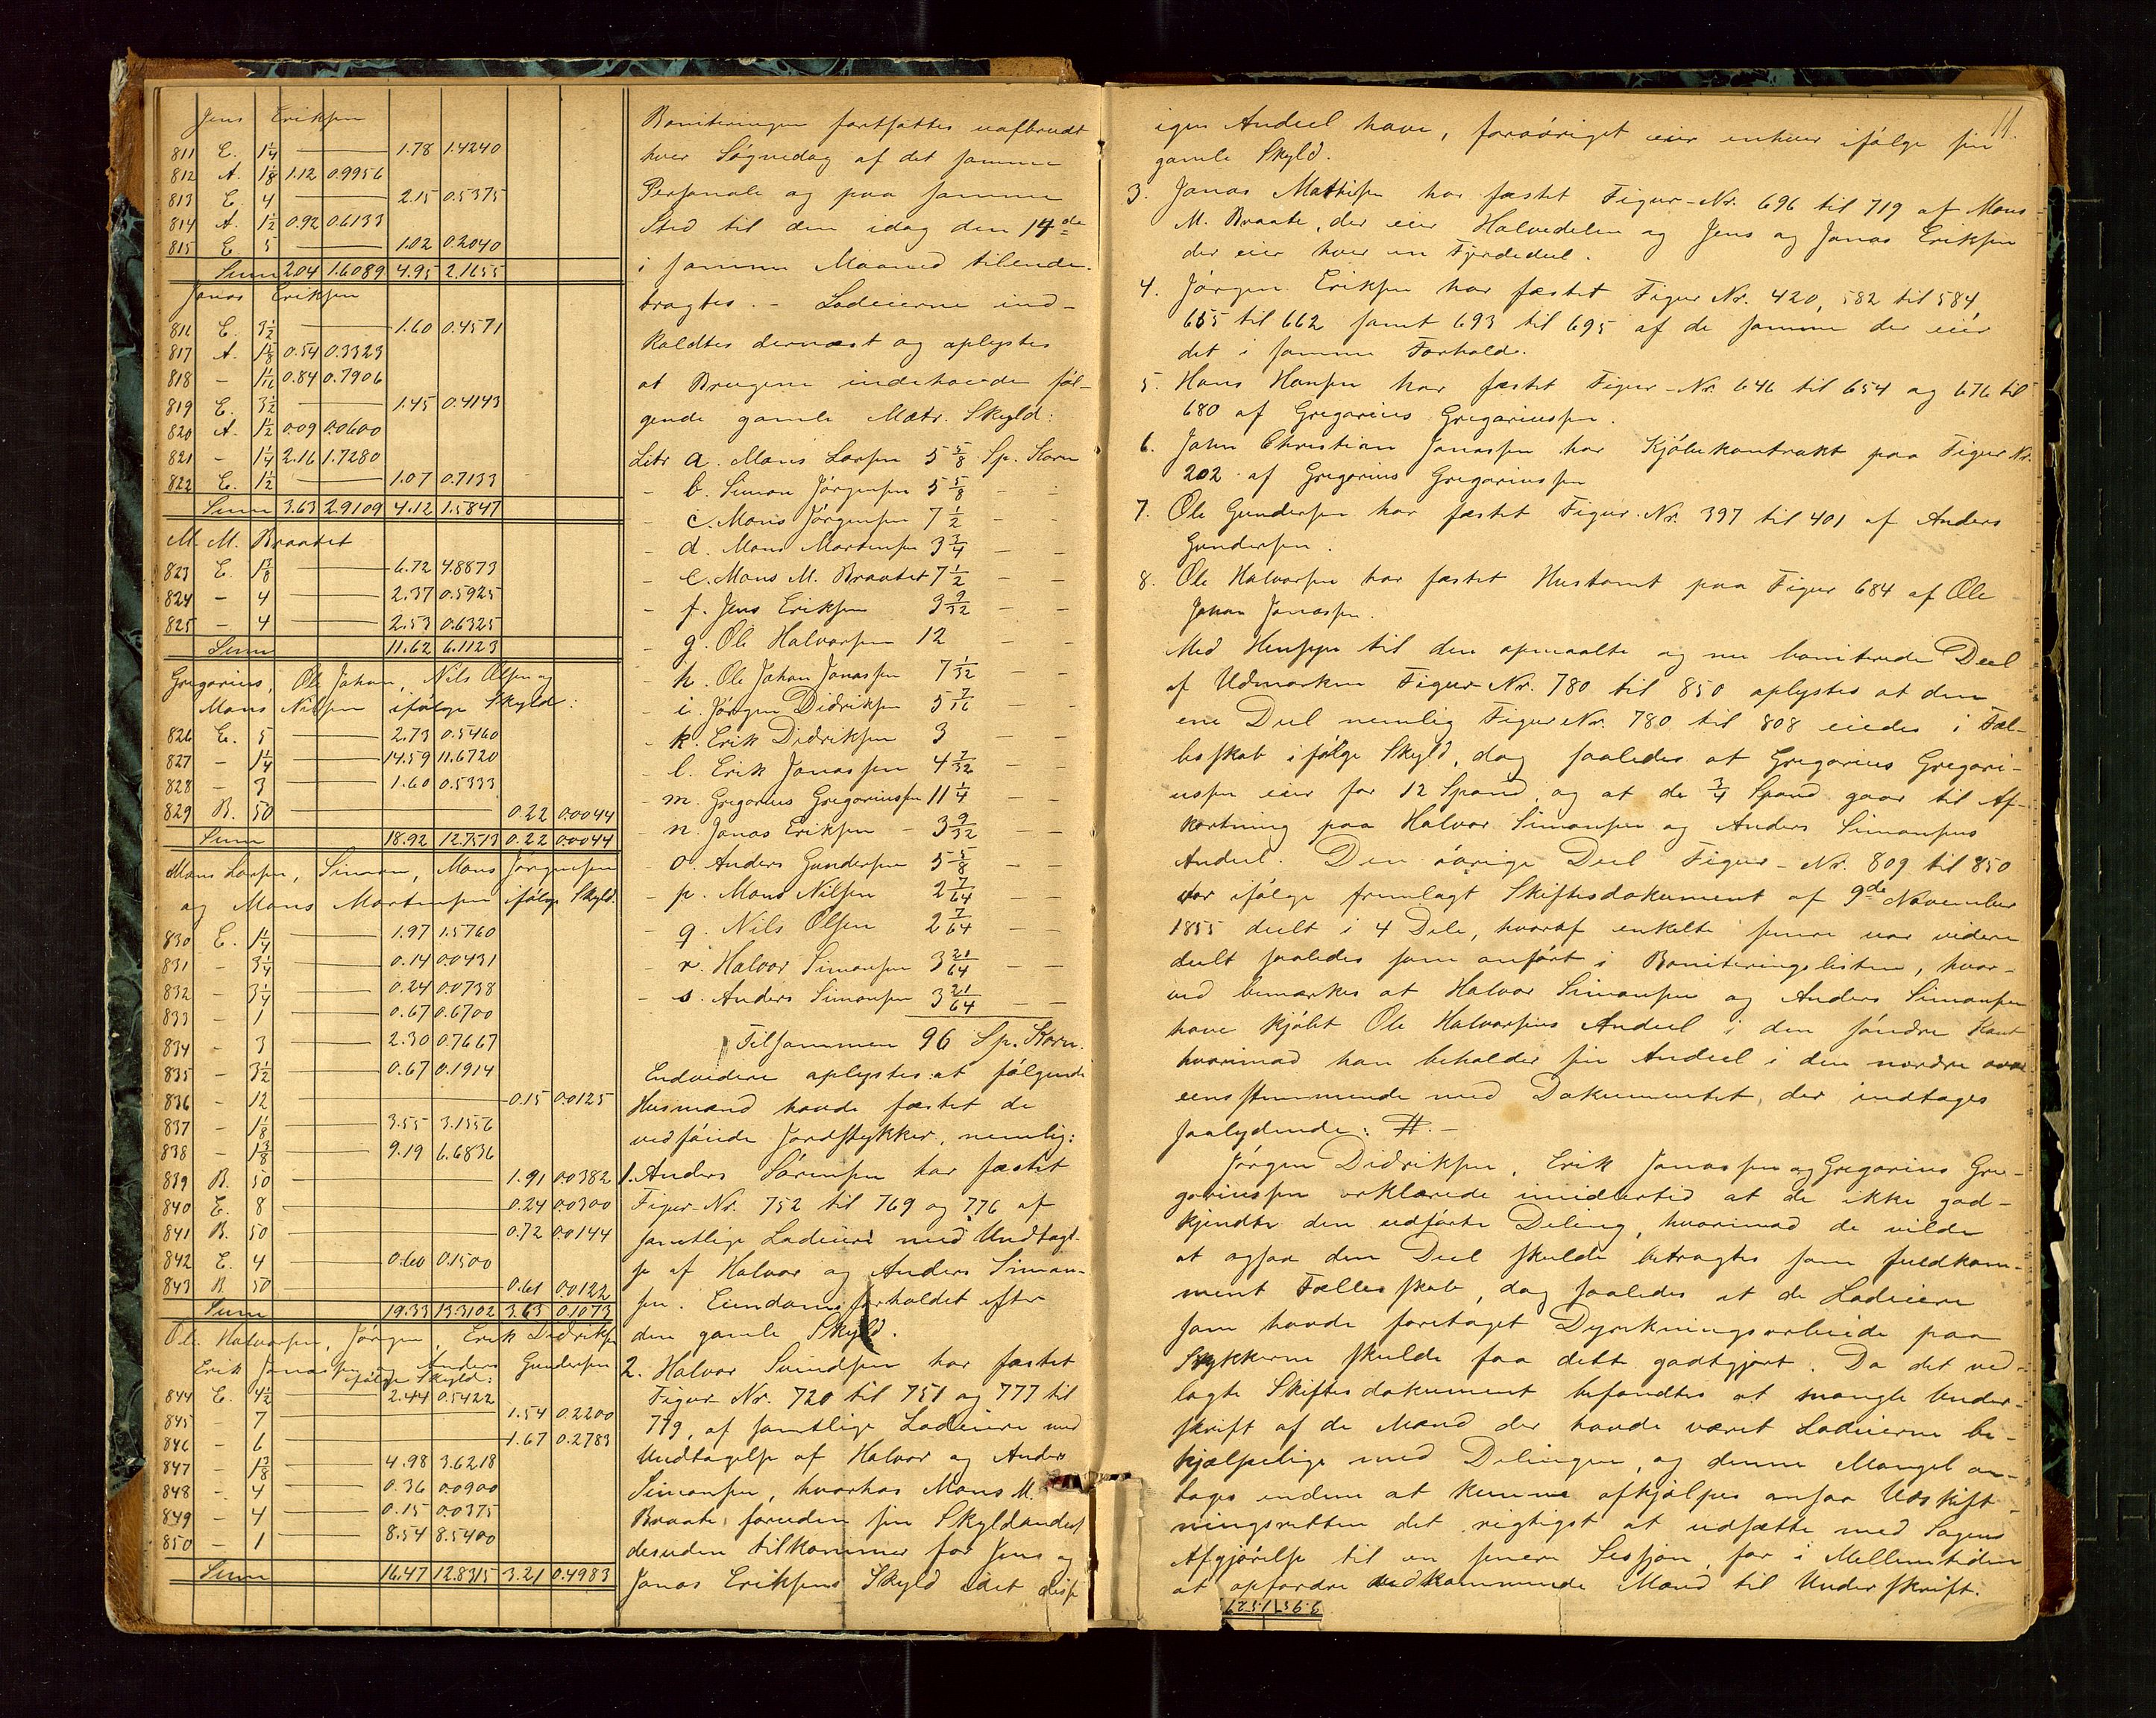 Jens Eriksen
811 E. 1¼ 1.78 1.4240
812 A. 1⅛ 1.12 0.9956
813 E. 4 2.15 0.5375
814 A. 1½ 0.92 0.6133
815 E. 5 1.02 0.2040
Sum 2.04 1.6089 4.95 2.1655
Jonas Eriksen
816 E. 3½ 1.60 0.4571
817 A. 1⅝ 0.54 0.3323
818 - 1 1/16 0.84 0.7906
819 E. 3½ 1.45 0.4143
820 A. 1½ 0.09 0.0600
821 - 1¼ 2.16 1.7280
822 E. 1½ 1.07 0.7133
Sum 3.63 2.9109 4.12 1.5847
M. M. Braatet
823 E. 1⅜ 6.72 4.8873
824 - 4 2.37 0.5925
825 - 4 2.53 0.6325
Sum 11.62 6.1123
Gregorius, Ole Johan, Nils Olsen og
Mons Nilsen ifølge Skyld:
826 E. 5 2.73 0.5460
827 - 1¼ 14.59 11.6720
828 - 3 1.60 0.5333
829 B. 50 0.22 0.0044
Sum 18.92 12.7513 0.22 0.0044
Mons Larsen, Simon, Mons Jørgensen
og Mons Mortensen ifølge Skyld.
830 E. 1¼ 1.97 1.5760
831 - 3¼ 0.14 0.0431
832 - 3¼ 0.24 0.0738
833 - 1 0.67 0.6700
834 - 3 2.30 0.7667
835 - 3½ 0.67 0.1914
836 - 12 0.15 0.0125
837 - 1⅛ 3.55 3.1556
838 - 1⅜ 9.19 6.6836
839 B. 50 1.91 0.0382
840 E. 8 0.24 0.0300
841 B. 50 0.72 0.0144
842 E. 4 0.60 0.1500
843 B. 50 0.61 0.0122
Sum 19.33 13.3102 3.63 0.1073
Ole Halvorsen, Jørgen, Erik Didriksen
Erik Jonassen og Anders Gundersen
ifølge Skyld:
844 E. 4½ 2.44 0.5422
845 - 7 1.54 0.2200
846 - 6 1.67 0.2783
847 - 1⅜ 4.98 3.6218
848 - 4 0.36 0.0900
849 - 4 0.15 0.0375
850 - 1 8.54 8.5400
Sum 16.47 12.8315 3.21 0.4983
Boniteringen fortsattes uafbrudt
hver Søgnedag af det samme
Personale og paa samme
Sted til den idag den 14de
i samme Maaned tilende-
bragtes. - Lodeierne ind-
kaldtes dernæst og oplystes
at Brugene indehavde føl-
gende gamle Matr. Skyld:
Litr a. Mons Larsen 5⅝ Sp. Korn
- b. Simon Jørgensen 5⅝ - -
- c. Mons Jørgensen 7½ - -
- d. Mons Mortensen 3¾ - -
- e. Mons M. Braatet 7½ - -
- f. Jens Eriksen 3 9/32 - -
- g. Ole Halvorsen 12 - -
- h. Ole Johan Jonassen 7 1/32 - -
- i. Jørgen Didriksen 5 7/16 - -
- k. Erik Didriksen 3 - -
- l. Erik Jonassen 4 7/32 - -
- m. Gregorius Gregoriussen 11¼ - -
- n. Jonas Eriksen - 3 9/32 - -
- o. Anders Gundersen 5⅝ - -
- p. Mons Nilsen 2 7/64 - -
- q. Nils Olsen 2 7/64 - -
- r. Halvor Simonsen 3 21/64 - -
- s. Anders Simonsen 3 21/64 - -
Tilsammen 96 Sp. Korn.
Endvidere oplystes at følgende
Husmænd havde fæstet de
vedføiede Jordstykker, nemlig:
1. Anders Sørensen har fæstet
Figur-Nr. 752 til 769 og 776 af
samtlige Lodeiere med Undtagel-
se af Halvor og Anders Simon-
sen. Eiendomsforholdet efter
den gamle Skyld.
2. Halvor Svendsen har fæstet
Figur Nr. 720 til 751 og 777 til
779, af samtlige Lodeiere med
Undtagelse af Halvor og Anders
Simonsen, hvorhos Mons M.
Braate, foruden sin Skyldandeel
desuden tilkommer for Jens og
Jonas Eriksens Skyld idet disse
11.
igen Andeel have, forøvrigt eier enhver ifølge sin
gamle Skyld.
3. Jonas Mathisen har fæstet Figur-Nr. 696 til 719 af Mons
M. Braate, der eier Halvedelen og Jens og Jonas Eriksen
der eier hver en Fjerdedeel.
4. Jørgen Eriksen har fæstet Figur Nr. 420, 582 til 584,
655 til 662 samt 693 til 695 af de samme der eier
det i samme Forhold.
5. Hans Hansen har fæstet Figur-Nr. 646 til 654 og 676 til
680 af Gregorius Gregoriussen.
6. John Christian Jonassen har Kjøbekontrakt paa Figur Nr.
202 af Gregorius Gregoriussen
7. Ole Gundersen har fæstet Figur-Nr. 397 til 401 af Anders
Gundersen.
8. Ole Halvorsen har fæstet Hustomt paa Figur 684 af Ole
Johan Jonassen.
Med Hensyn til den opmaalte og nu boniterede Deel
af Udmarken Figur-Nr. 780 til 850 oplystes at den
ene Deel nemlig Figur Nr. 780 til 808 eiedes i Fæl-
lesskab ifølge Skyld, dog saaledes at Gregorius Gregori-
ussen eier for 12 Spand og at de ¾ Spand gaar til Af-
kortning paa Halvor Simonsen og Anders Simonsens
Andeel. Den øvrige Deel Figur-Nr. 809 til 850
var ifølge fremlagt Skiftesdokument af 9de November
1855 deelt i 4 Dele, hvoraf enkelte senere var videre
deelt saaledes som anført i Boniteringslisten, hvor-
ved bemærkes at Halvor Simonsen og Anders Simonsen
have kjøbt Ole Halvorsens Andeel i den søndre Kant
hvorimod han beholder sin Andeel i den nordre over-
eensstemmende med Dokumentet, der indtages
saalydende: #. -
Jørgen Didriksen, Erik Jonassen og Gregorius Gre-
goriussen erklærede imidlertid at de ikke god-
kjendte den udførte Deling, hvorimod de vilde
at ogsaa den Deel skulde betragtes som fuldkom-
ment Fællesskab, dog saaledes at de Lodeiere
som havde foretaget Dyrkningsarbeide paa
Stykkerne skulde faa dette godtgjort. Da det ved-
lagte Skiftesdokument befandtes at mangle Under-
skrift af de Mænd der havde været Lodeierne be-
hjælpelige med Delingen, og denne Mangel an-
toges endnu at kunne afhjælpes ansaa Udskift-
ningsretten det rigtigst at udsætte med Sagens
Afgjørelse til en senere Session, for i Mellemtiden
at opfordre vedkommende Mænd til Underskrift.